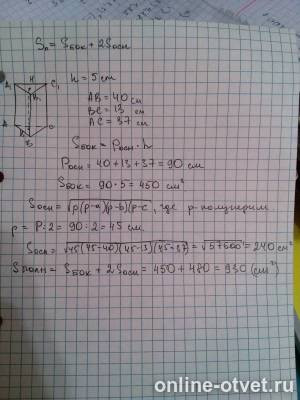 Sп = Sбок + 2Sосн
A₁ H C₁
B₁
h = 5 cm
AB = 40 см
BC = 13 см
AC = 37 см
A
B
Sбок = Pосн · h
Pосн = 40 + 13 + 37 = 90 см
Sбок = 90 · 5 = 450 см²
Sосн = √p(p-a)(p-b)(p-c), где p-полуперим
p = P : 2 = 90 : 2 = 45 см.
Sосн = √45(45-40)(45-13)(45-37) = √57600 = 240 см²
Sполн = Sбок + 2Sосн = 450 + 480 = 930 (см²)
online-otvet.ru